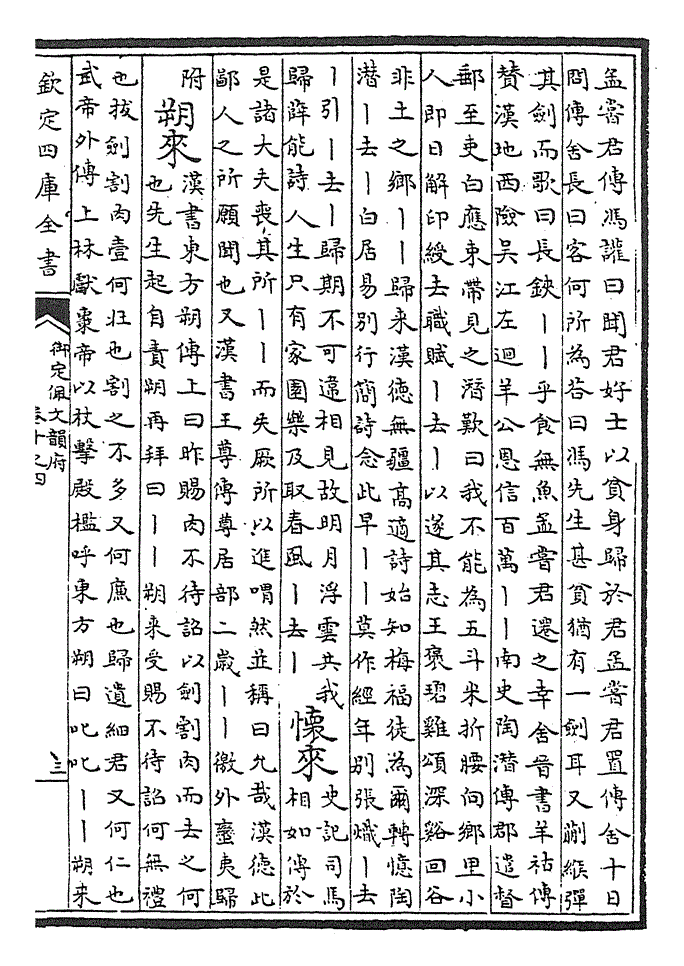 孟嘗君傳馮讙曰聞君好士以貧身歸於君孟嘗君置傳舍十日
問傳舍長曰客何所為荅曰馮先生甚貧猶有一劍耳又蒯緱彈
其劍而歌曰長鋏丨丨乎食無魚孟嘗君遷之幸舍晉書羊祜傳
賛漢地西險吳江左迴羊公恩信百萬丨丨南史陶潛傳郡遣督
郵至吏白應束帶見之潛歎曰我不能為五斗米折腰向鄉里小
人即日解印綬去職賦丨去丨以遂其志王褒碧雞頌深谿回谷
非土之鄉丨丨歸来漢德無疆高適詩始知梅福徒為爾轉憶陶
潜丨去丨白居易別行簡詩念此早丨丨莫作經年別張熾丨去
丨引丨去丨歸期不可違相見故明月浮雲共我
歸薛能詩人生只有家園樂及取春風丨去丨
懷來
史記司馬
相如傳於
是諸大夫喪其所丨丨而失厥所以進喟然並稱曰允哉漢德此
鄙人之所願聞也又漢書王尊傳尊居部二嵗丨丨徼外蠻夷歸
附
朔來
漢書東方朔傳上曰昨賜肉不待詔以劍割肉而去之何
也先生起自責朔再拜曰丨丨朔来受賜不待詔何無禮
也拔劍割肉壹何壯也割之不多又何廉也歸遺細君又何仁也
武帝外傳上林獻棗帝以杖擊殿檻呼東方朔曰叱叱丨丨朔来
欽定四庫全書
御定佩文韻府
卷十之四
三